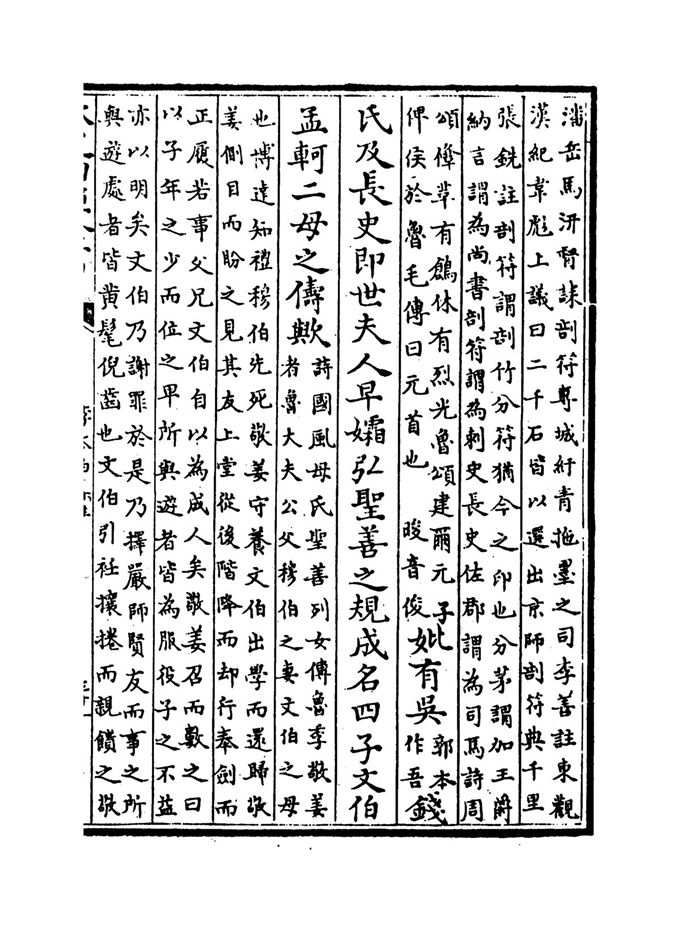 潘岳馬汧督誄剖符專城紆青拖墨之司李善註東觀
漢紀韋彪上議曰二千石皆以選出京師剖符典千里
張銑註剖符謂剖竹分符猶今之印也分茅謂加王爵
納言謂為尚書剖符謂為刺史長史佐郡謂為司馬詩周
頌鞗革有鶬休有烈光魯頌建爾元子
俾侯於魯毛傳曰元首也 畯音俊
妣有吳郭本作吾錢
氏及長史即世夫人早孀弘聖善之規成名四子文伯
孟軻二母之儔歟
詩國風母氏聖善列女傳魯季敬姜
者魯大夫公父穆伯之妻文伯之母
也博達知禮穆伯先死敬姜守養文伯出學而還歸敬
姜側目而盼之見其友上堂從後階降而却行奉劍而
正履若事父兄文伯自以為成人矣敬姜召而數之曰
以子年之少而位之卑所與遊者皆為服役子之不益
亦以明矣文伯乃謝罪於是乃擇嚴師賢友而事之所
與遊處者皆黄髦倪齒也文伯引衽攘捲而親饋之敬